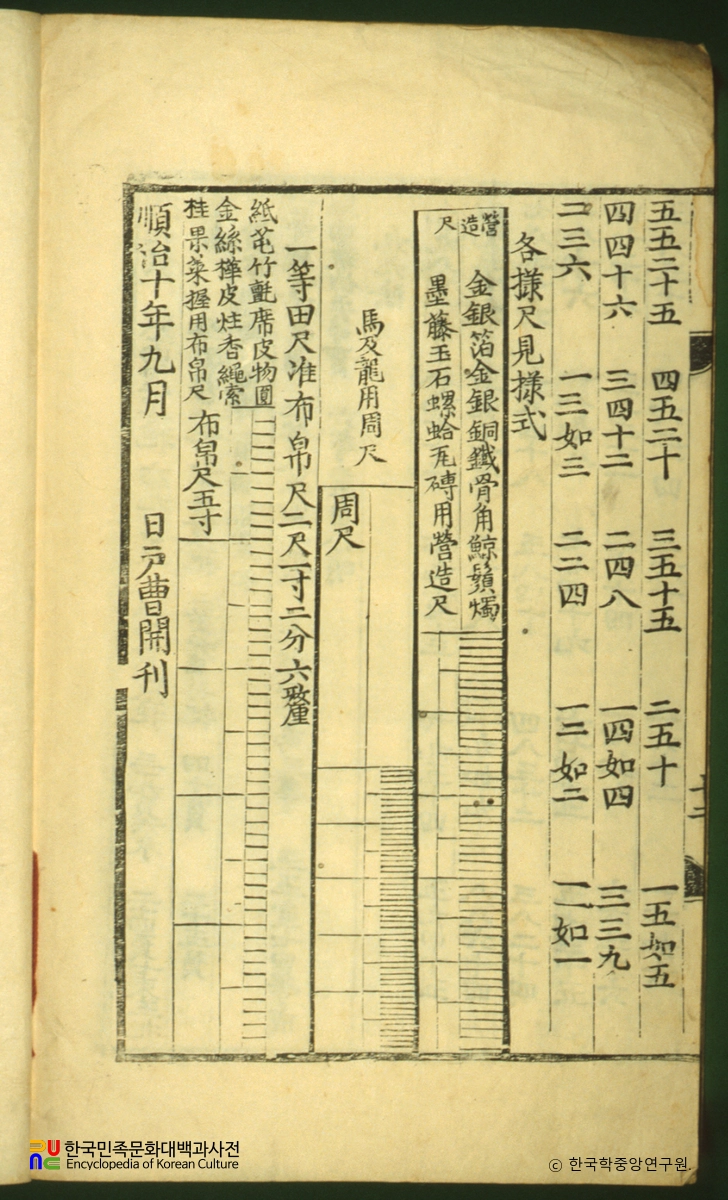 五五二十五 四五二十 三五十五 二五十 一五如五
四四十六 三四十二 二四八 一四如四 三三九
二三六 一三如三 二二四 一二如二 一一如一
各㨾尺見㨾式
營造尺
金銀箔金銀銅鐵骨角鯨鬚燭
墨藤玉石螺蛤瓦磚用營造尺
馬及龍用周尺
周尺
一等田尺准布帛尺二尺一寸二分六釐
紙芚竹氈席皮物圓
金絲樺皮炷香繩索
桂果菜握用布帛尺
布帛尺五寸
順治十年九月 日戶曹開刊
十二
한국민족문화대백과사전
Encyclopedia of Korean Culture
ⓒ 한국학중앙연구원